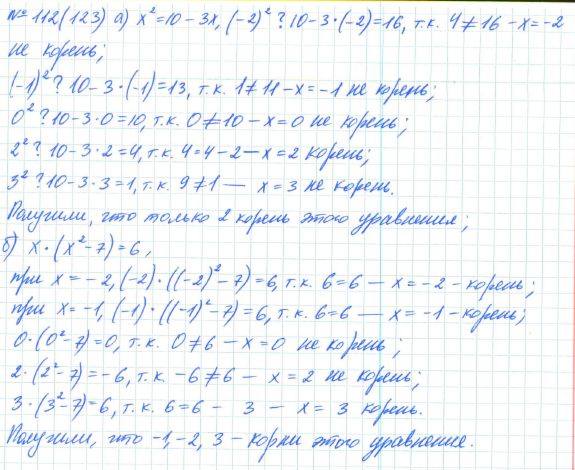 № 112(123) а) x²=10-3x, (-2)² ? 10-3·(-2)=16, т.к. 4≠16 - x=-2
не корень;
(-1)² ? 10-3·(-1)=13, т.к. 1≠11 - x=-1 не корень;
0² ? 10-3·0=10, т.к. 0≠10 - x=0 не корень;
2² ? 10-3·2=4, т.к. 4=4-2-x=2 корень;
3² ? 10-3·3=1, т.к. 9≠1 — x=3 не корень.
Получили, что только 2 корень этого уравнения;
б) x·(x²-7)=6,
при x=-2, (-2)·((-2)²-7)=6, т.к. 6=6 — x=-2 - корень;
при x=-1, (-1)·((-1)²-7)=6, т.к. 6=6 — x=-1 - корень;
0·(0²-7)=0, т.к. 0≠6 - x=0 не корень;
2·(2²-7)=-6, т.к. -6≠6 - x=2 не корень;
3·(3²-7)=6, т.к. 6=6 - 3 - x=3 корень.
Получили, что -1,-2, 3 - корни этого уравнения.